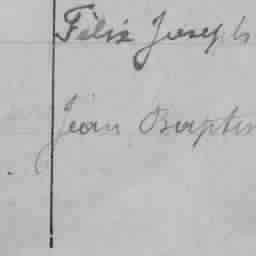 Félix Joseph
Jean Baptis